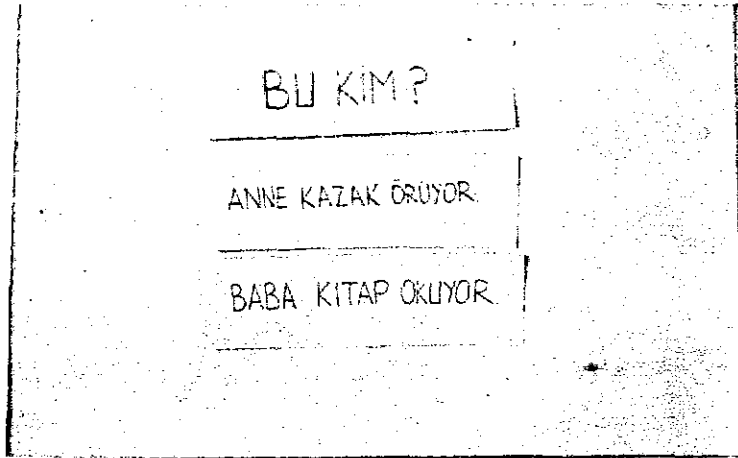 BU KİM?
ANNE KAZAK ÖRÜYOR.
BABA KİTAP OKUYOR